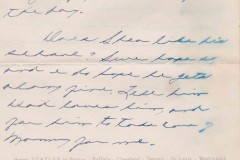 the day.
Does Shea like his
school? Sure hope so
and I do hope he gets
along fine. Tell him
Dad loves him, and
for him to take care of
Mommy for me.